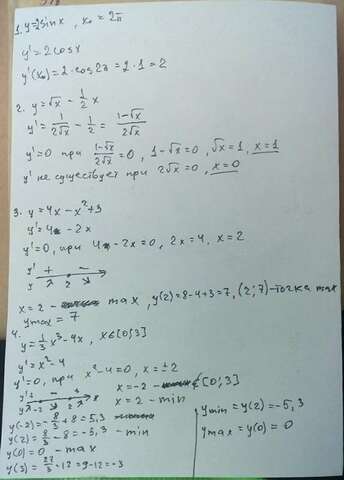 1. y=2sinx, x₀ = 2π
y' = 2cosx
y'(x₀) = 2 · cos2π = 2 · 1 = 2
2. y = √x - 1/2 x
y' = 1/(2√x) - 1/2 = (1-√x)/(2√x)
y'=0 при (1-√x)/(2√x) = 0, 1-√x = 0, √x = 1, x = 1
y' не существует при 2√x = 0, x = 0
3. y = 4x - x² + 3
y' = 4 - 2x
y'=0, при 4 - 2x = 0, 2x = 4, x = 2
y' + -
y 2
x = 2 - max, y(2) = 8-4+3 = 7, (2; 7) - точка max
ymax = 7
4. y = 1/3 x³ - 4x, x∈[0;3]
y' = x² - 4
y'=0, при x² - 4 = 0, x = ±2
y' + - +
y -2 2
x = -2 - ∉[0;3]
x = 2 - min
y(-2) = -8/3 + 8 = 5,3
y(2) = 8/3 - 8 = -5,3 - min
y(0) = 0 - max
y(3) = 27/3 - 12 = 9-12 = -3
ymin = y(2) = -5,3
ymax = y(0) = 0